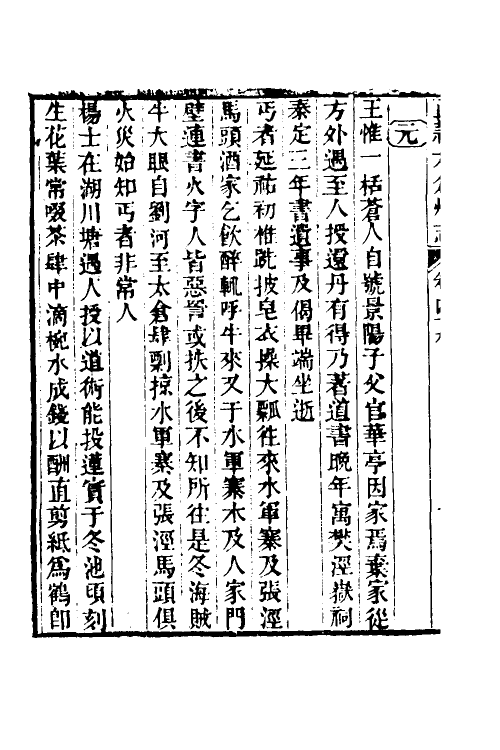 元
王惟一栝蒼人自號景陽子父官華亭因家焉棄家從
方外遇至人授還丹有得乃著道書晚年寓樊涇嶽祠
泰定三年書遺事及偈畢端坐逝
丐者延祐初椎跣披皂衣操大瓢往來水軍寨及張涇
馬頭酒家乞飲醉輒呼牛來又于水軍寨木及人家門
壁連書火字人皆惡詈或抶之後不知所往是冬海賊
牛大眼自劉河至太倉肆剽掠水軍寨及張涇馬頭俱
火災始知丐者非常人
楊士在湖川塘遇人授以道術能投蓮實于冬池頃刻
生花葉常啜茶肆中滴椀水成錢以酬直剪紙為鶴即